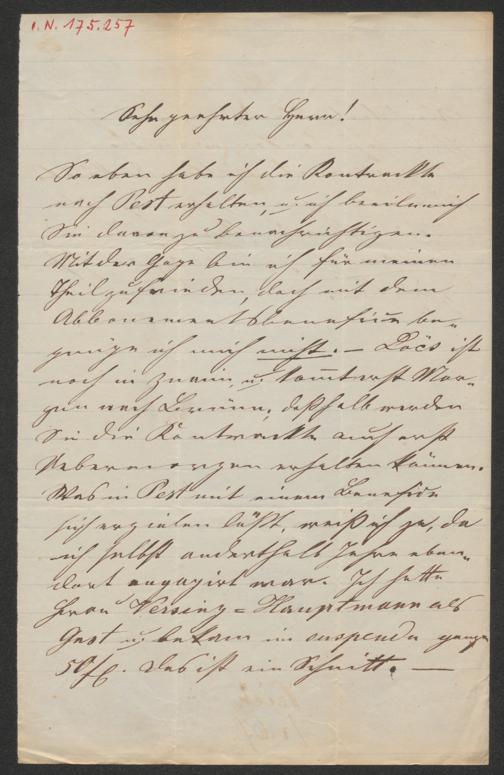 I. N. 175.257
Sehr geehrter Herr!
So eben habe ich die Kontrackte
nach Pest erhalten, u. ich beeile mich
Sie davon zu benachrichtigen.
Mit der Gage bin ich für meinen
Theil zufrieden, doch mit dem
Abbonementsbenefice be-
gnüge ich mich nicht. – Döcs ist
noch in Znaim u. kommt erst Mor-
gen nach Brünn, deßhalb werden
Sie die Kontrackte auch erst
Uebermorgen erhalten können.
Was in Pest mit einem Benefice
sich erzielen läßt, weiß ich ja, da
ich selbst anderthalb Jahre eben-
dort engagirt war. Ich hatte
Frau Versing-Hauptmann als
Gast u. bekam im suspendu ganze
50 fl. Das ist ein Schnitt. —